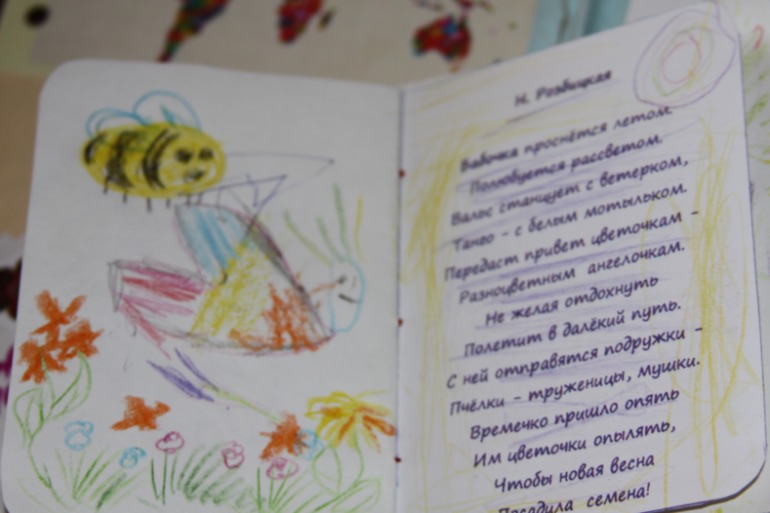 Н. Розбицкая
Бабочка проснётся летом.
Полюбуется рассветом.
Вальс станцует с ветерком,
Танго - с белым мотыльком.
Передаст привет цветочкам -
Разноцветным ангелочкам.
Не желая отдохнуть
Полетит в далёкий путь.
С ней отправятся подружки -
Пчёлки - труженицы, мушки.
Времечко пришло опять
Им цветочки опылять,
Чтобы новая весна
семена!